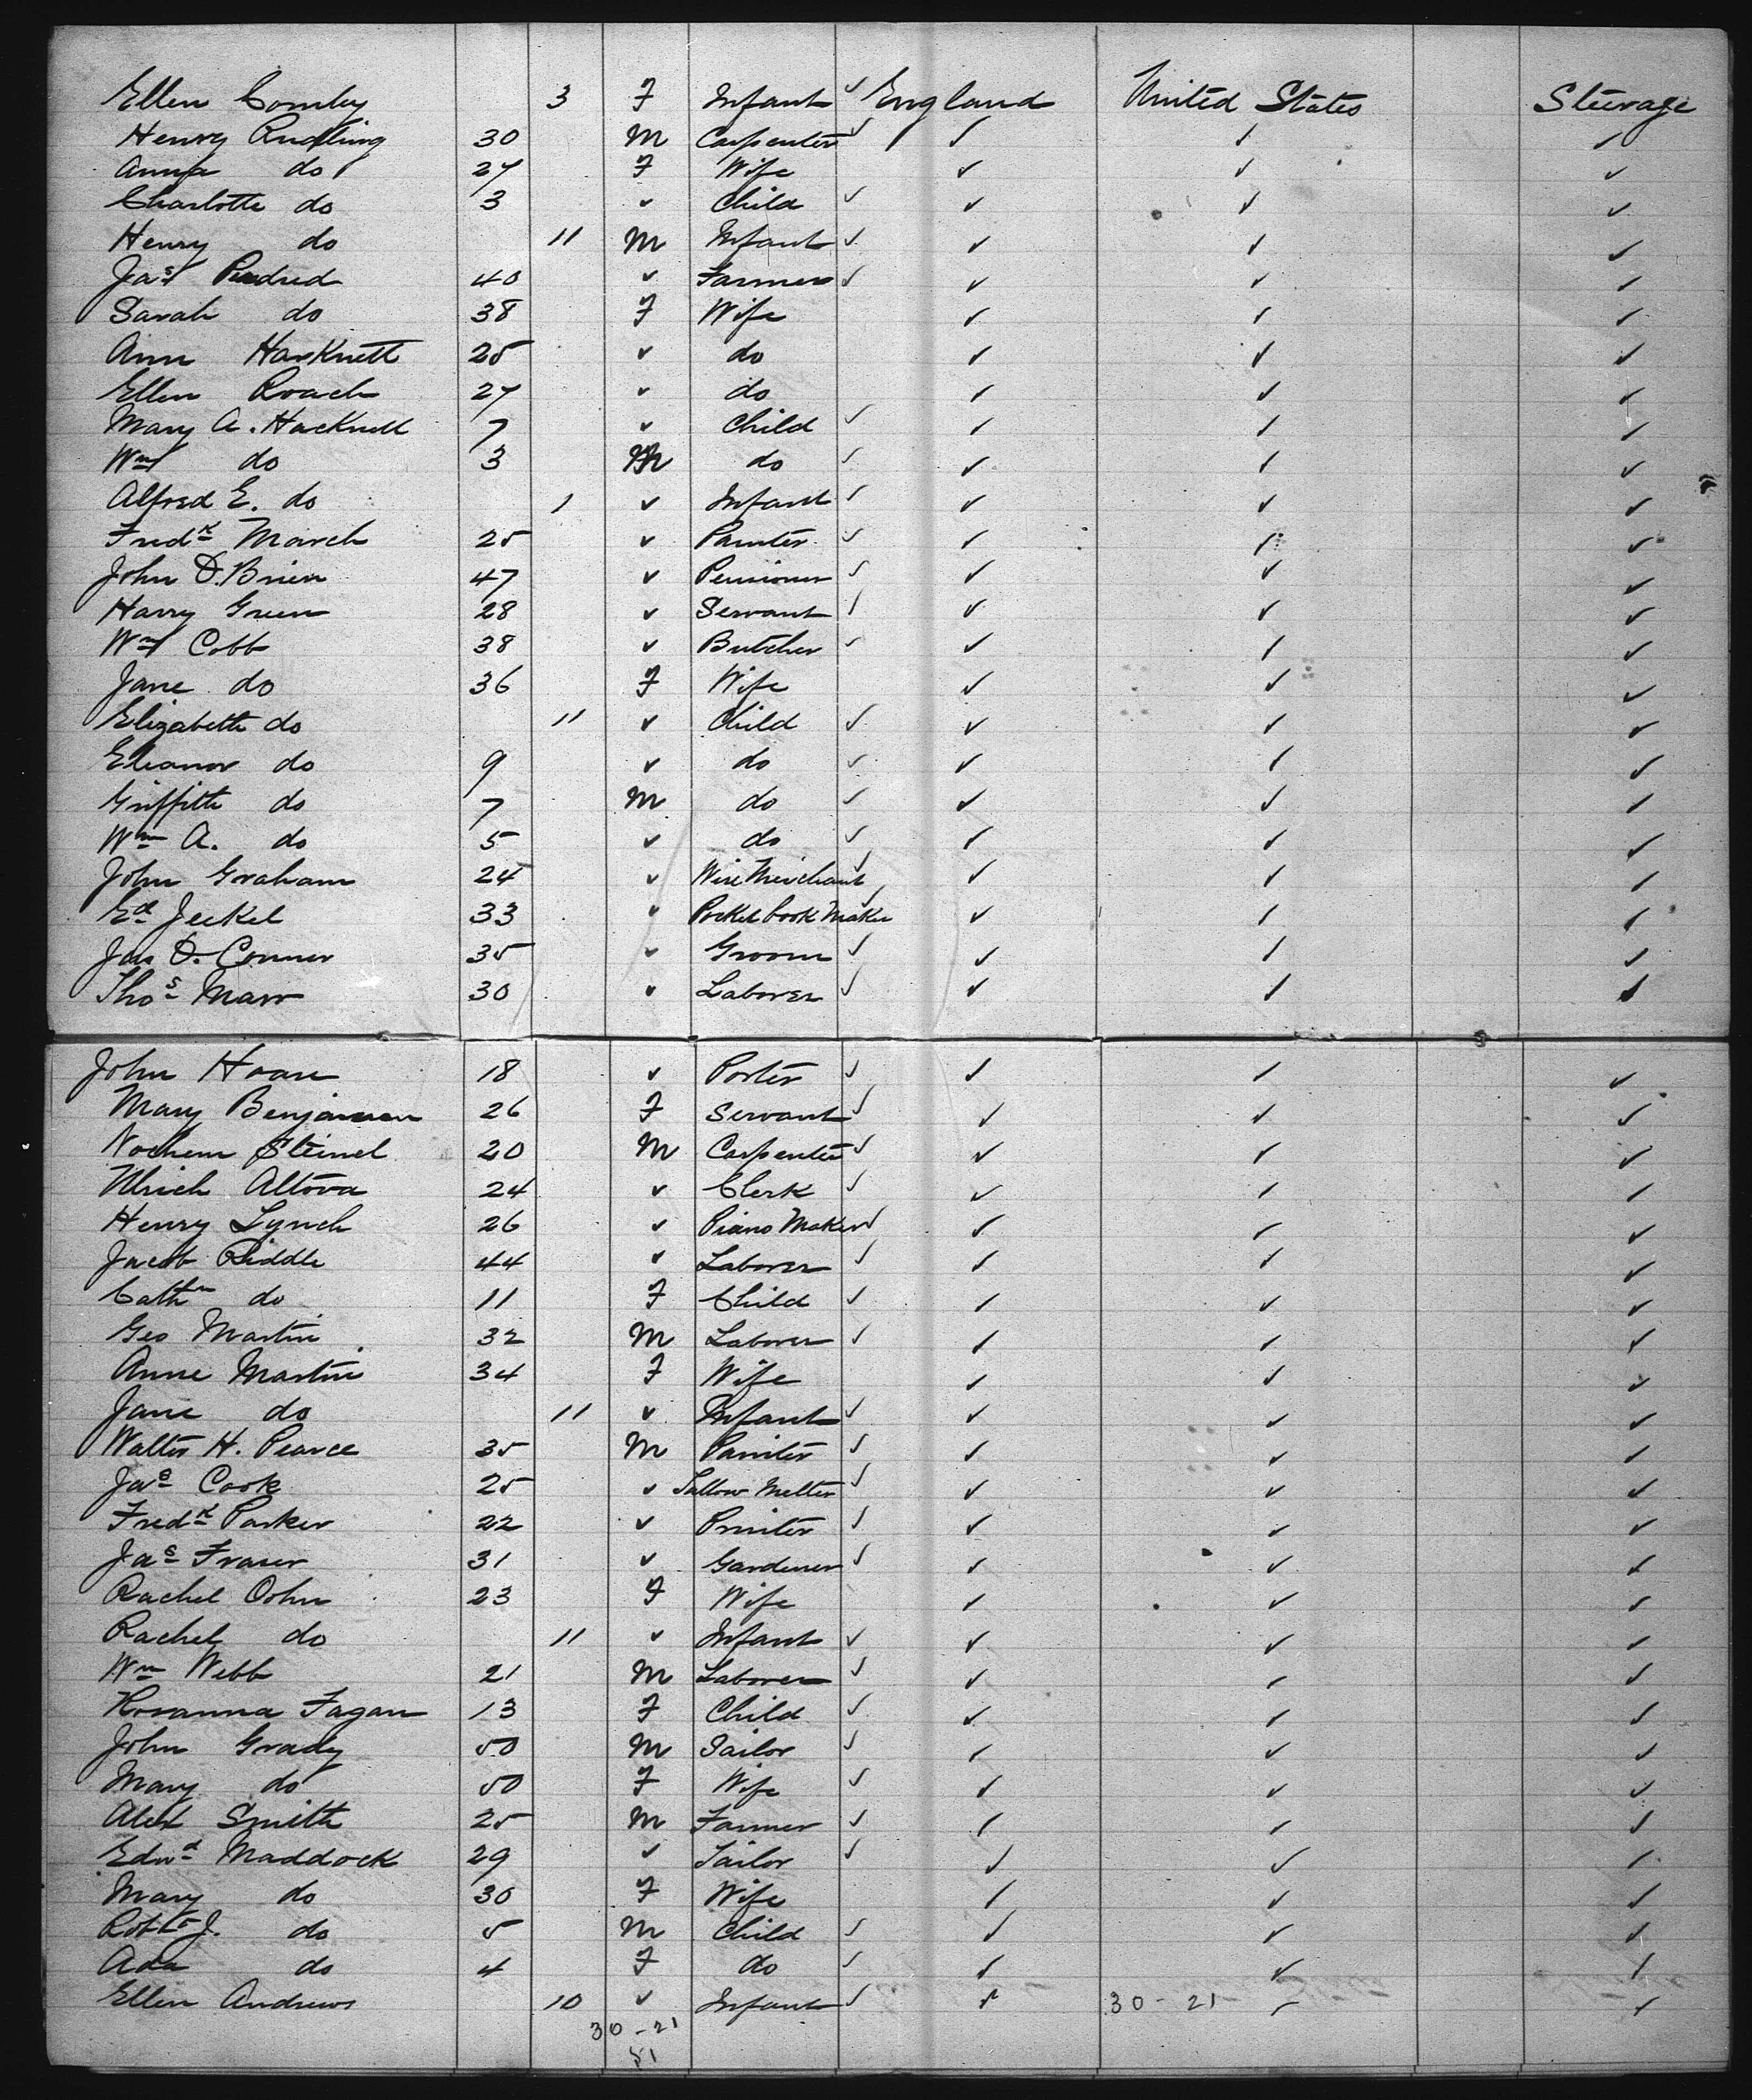 Ellen Comley 3 F Infant ✓ England United States Steerage
Henry Rudling 30 M Carpenter ✓ ✓ ✓ ✓
Anna do 27 F Wife ✓ ✓ ✓
Charlotte do 3 ✓ Child ✓ ✓ ✓ ✓
Henry do 11 M Infant ✓ ✓ ✓ ✓
Jas 40 ✓ Farmer ✓ ✓ ✓ ✓
Sarah do 38 F Wife ✓ ✓ ✓
Ann Harknett 25 ✓ do ✓ ✓ ✓
Ellen Roach 27 ✓ do ✓ ✓ ✓
Mary A. Hacknett 7 ✓ Child ✓ ✓ ✓ ✓
Wm do 3 M do ✓ ✓ ✓ ✓
Alfred E. do 1 ✓ Infant ✓ ✓ ✓ ✓
Fredk March 25 ✓ Painter ✓ ✓ ✓ ✓
John O.Brien 47 ✓ Pensioner ✓ ✓ ✓ ✓
Harry Green 28 ✓ Servant ✓ ✓ ✓ ✓
Wm Cobb 38 ✓ Butcher ✓ ✓ ✓ ✓
Jane do 36 F Wife ✓ ✓ ✓
Elizabeth do 11 ✓ Child ✓ ✓ ✓ ✓
Eleanor do 9 ✓ do ✓ ✓ ✓ ✓
Griffith do 7 M do ✓ ✓ ✓ ✓
Wm A. do 5 ✓ do ✓ ✓ ✓ ✓
John Graham 24 ✓ Wine Merchant ✓ ✓ ✓ ✓
Ed Jeckel 33 ✓ Pocket book Maker ✓ ✓ ✓ ✓
Jas O. Connor 35 ✓ Groom ✓ ✓ ✓ ✓
Thos Marr 30 ✓ Laborer ✓ ✓ ✓ ✓
John Hoare 18 ✓ Porter ✓ ✓ ✓ ✓
Mary Benjamin 26 F Servant ✓ ✓ ✓ ✓
Nochem Steinel 20 M Carpenter ✓ ✓ ✓ ✓
Ulrich Altova 24 ✓ Clerk ✓ ✓ ✓ ✓
Henry Lynch 26 ✓ Piano Maker ✓ ✓ ✓ ✓
Jacob Riddle 44 ✓ Laborer ✓ ✓ ✓ ✓
Cathn do 11 F Child ✓ ✓ ✓ ✓
Geo Martin 32 M Laborer ✓ ✓ ✓ ✓
Anne Martin 34 F Wife ✓ ✓ ✓
Jane do 11 ✓ Infant ✓ ✓ ✓ ✓
Walter H. Pearce 35 M Painter ✓ ✓ ✓ ✓
Jas Cook 25 ✓ Tallow Melter ✓ ✓ ✓ ✓
Fredk Parker 22 ✓ Printer ✓ ✓ ✓ ✓
Jas Fraser 31 ✓ Gardener ✓ ✓ ✓ ✓
Rachel Cohn 23 F Wife ✓ ✓ ✓
Rachel do 11 ✓ Infant ✓ ✓ ✓ ✓
Wm Webb 21 M Laborer ✓ ✓ ✓ ✓
Rosanna Fagan 13 F Child ✓ ✓ ✓ ✓
John Grady 50 M Sailor ✓ ✓ ✓ ✓
Mary do 50 F Wife ✓ ✓ ✓ ✓
Alex Smith 25 M Farmer ✓ ✓ ✓ ✓
Edwd Maddock 29 ✓ Tailor ✓ ✓ ✓ ✓
Mary do 30 F Wife ✓ ✓ ✓
Robt J. do 5 M Child ✓ ✓ ✓ ✓
Ada do 4 F do ✓ ✓ ✓ ✓
Ellen Andrews 10 ✓ Infant ✓ ✓ 30-21 ✓ ✓
30-21
51